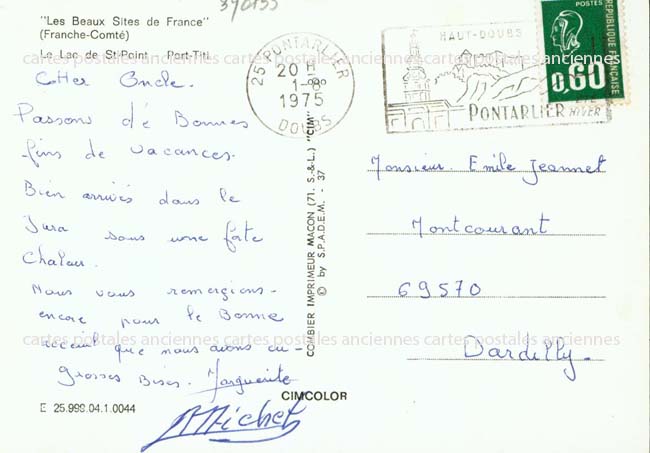 370155
"Les Beaux Sites de France"
(Franche-Comté)
Le Lac de St-Point - Port-Titi
cartes postales anciennes cartes postales anciennes cartes postales anciennes
Cher Oncle.
Passons dé Bonnes
fins de vacances.
Bien arrivés dans le
Jura sous une forte
Chaleur.
Nous vous remercions
encore pour le Bonne
acceuil que nous avons eu-
Grosses Bises. Marguerite
Michel
E 25.999.04.1.0044
25 PONTARLIER
20 H
1-8
1975
DOUBS
HAUT-DOUBS
PONTARLIER
ÉTÉ
HIVER
POSTES
0,60
REPUBLIQUE FRANÇAISE
COMBIER IMPRIMEUR MACON (71. S.-&-L.) "CIM"
© by S.P.A.D.E.M. - 37
CIMCOLOR
Monsieur. Emile Jeannet
Montcourant
69570
Dardilly.
cartes postales anciennes cartes postales anciennes cartes postales anciennes
cartes postales anciennes cartes postales anciennes cartes postales anciennes